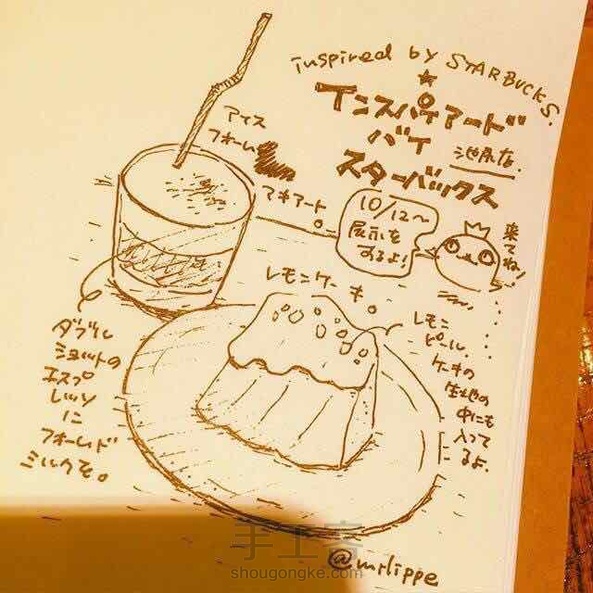 inspired by STARBUCKS.
インスパイアード
バイ
スターバックス
池尻店.
アイス
フォーム
マキアート
10/12〜
展示を
するよ!
来てね!
レモンケーキ。
レモン
ピール.
ケーキの
生地の
中にも
入って
るよ.
ダブル
ショットの
エスプ
レッソ
に
フォームド
ミルクを。
@mrlippe
手工客
shougongke.com